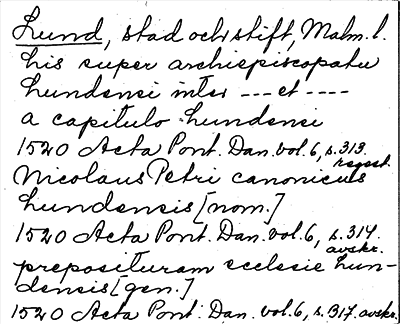 Lund, stad och stift, Malm. l.
his super archiepiscopatu
Lundensi inter --- et ----
a capitulo Lundensi
1520 Acta Pont. Dan. vol. 6, s. 313
regest.
Nicolaus Petri canonicus
Lundensis [nom.]
1520 Acta Pont. Dan. vol. 6, s. 317.
avskr.
preposituram ecclesie Lun-
densis [gen.]
1520 Acta Pont. Dan. vol. 6, s. 317. avskr.